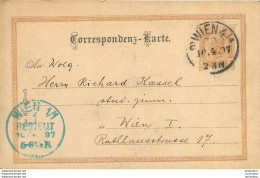 Correspondenz-Karte.
WIEN 1/1
10.4.97
2-3N
An Wolg.
Herrn Richard Kassel
stud. gymn.
in Wien I.
Rathhausstrasse 17.
WIEN 1/1
BESTELLT
97
delcampe.net